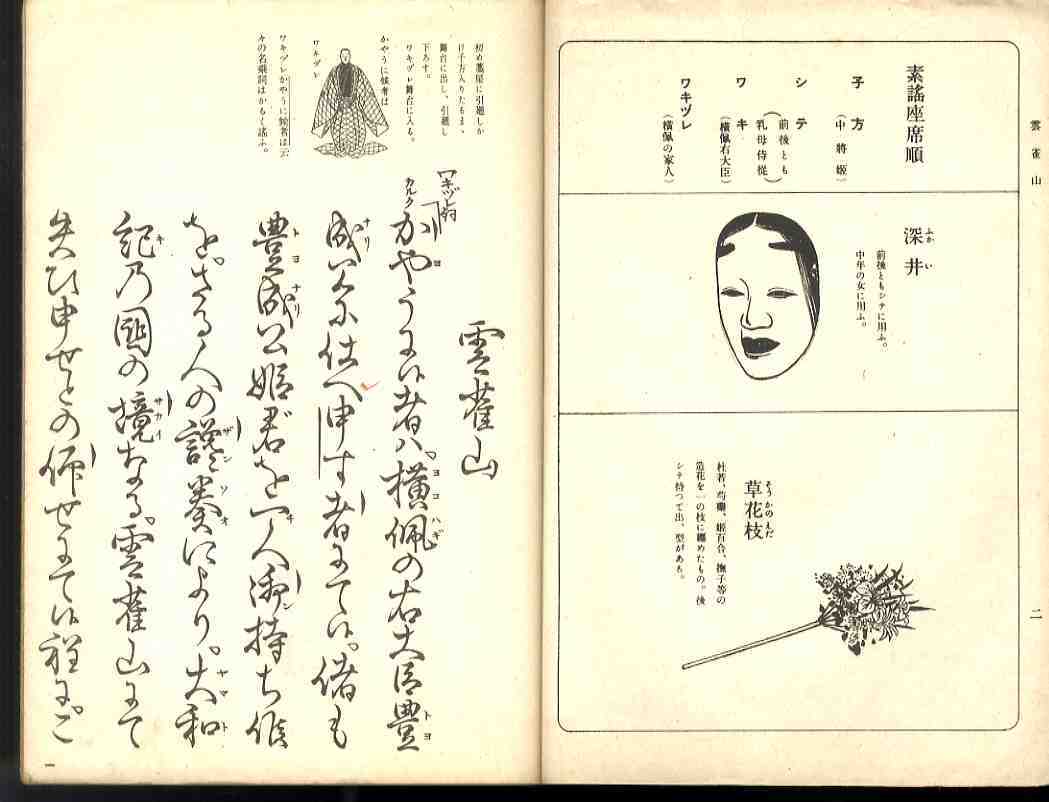 雲雀山
二
素謠座席順
子方
(中將姬)
シテ
(前後とも
乳母侍從)
ワキ
(橫佩右大臣)
ワキヅレ
(橫佩の家人)
深井
ふかい
前後ともシテに用ふ。
中年の女に用ふ。
草花枝
さうかのえだ
杜若、
姬百合、撫子等の
造花を一の枝に纏めたもの。後
シテ持つて出、型がある。
舞臺に出し、引廻し
下ろす。
ワキヅレ舞台に入る。
かやうに候者は
ワキヅレ
ワキヅレかやうに候者は云
々の名乘詞はかるく謠ふ。
雲雀山
ワキヅレ詞
カルク
かやうに候者ハ。橫佩の右大臣豐
成公に仕へ申す者にて候。偖も
豐成公姬君を一人御持ち候
を。さる人の讒奏により。大和
紀乃國の境なる。雲雀山にて
失ひ申せとの仰せにて候程に。ご
一